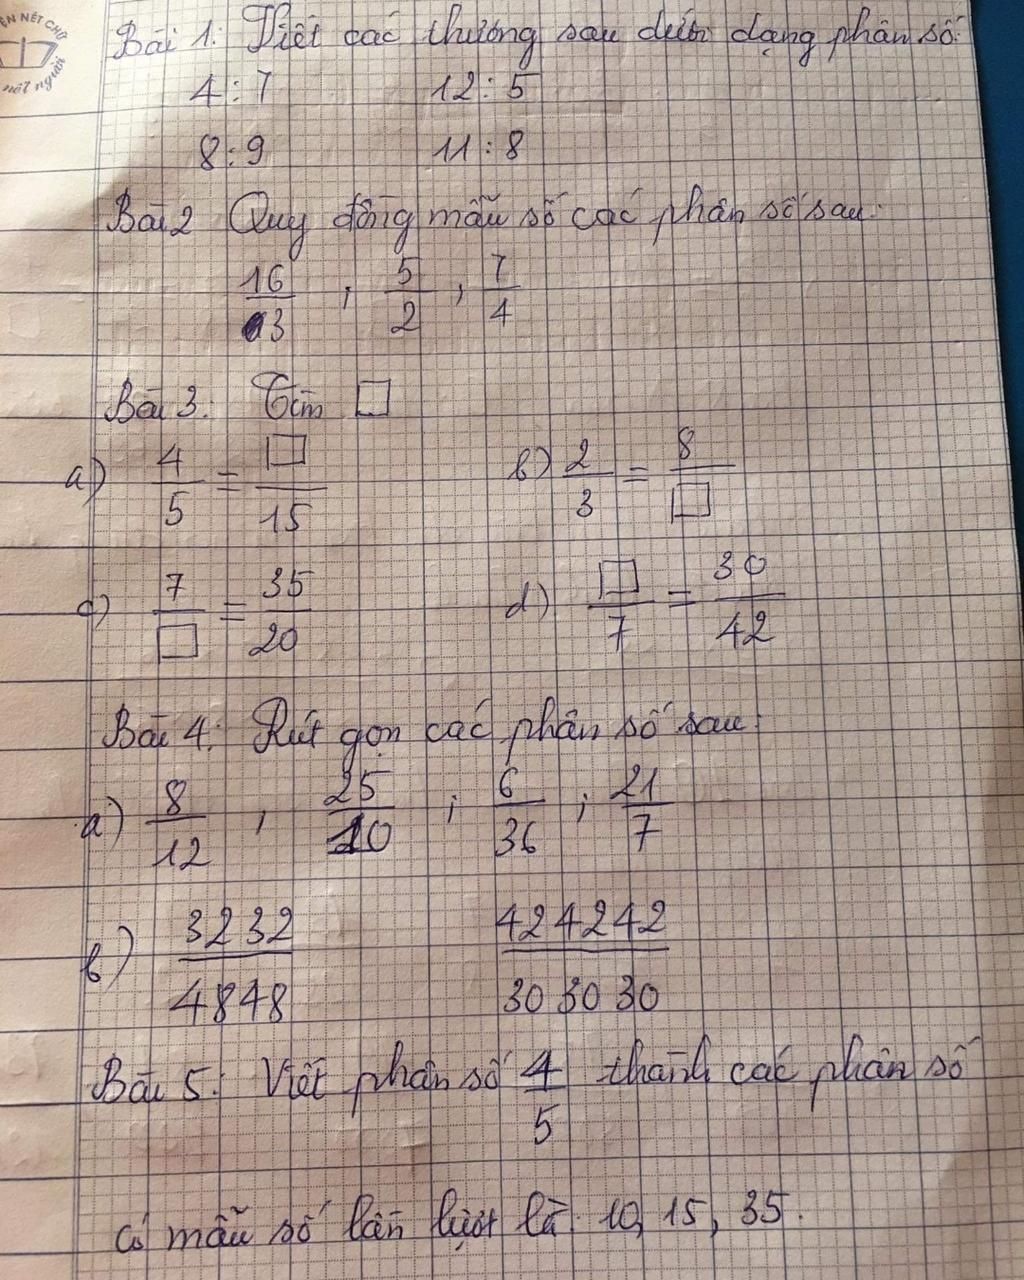 ỆN NÉT CHỮ
nết người
Bài 1: Viết các thương sau dưới dạng phân số:
4 : 7 12 : 5
8 : 9 11 : 8
Bài 2 Quy đồng mẫu số các phân số sau:
16/3 ; 5/2 ; 7/4
Bài 3: Tìm □
a) 4/5 = □/15 b) 2/3 = 8/□
c) 7/□ = 35/20 d) □/7 = 30/42
Bài 4: Rút gọn các phân số sau:
a) 8/12 ; 25/10 ; 6/36 ; 21/7
b) 3232/4848 424242/303030
Bài 5: Viết phân số 4/5 thành các phân số
có mẫu số lần lượt là: 10, 15, 35.